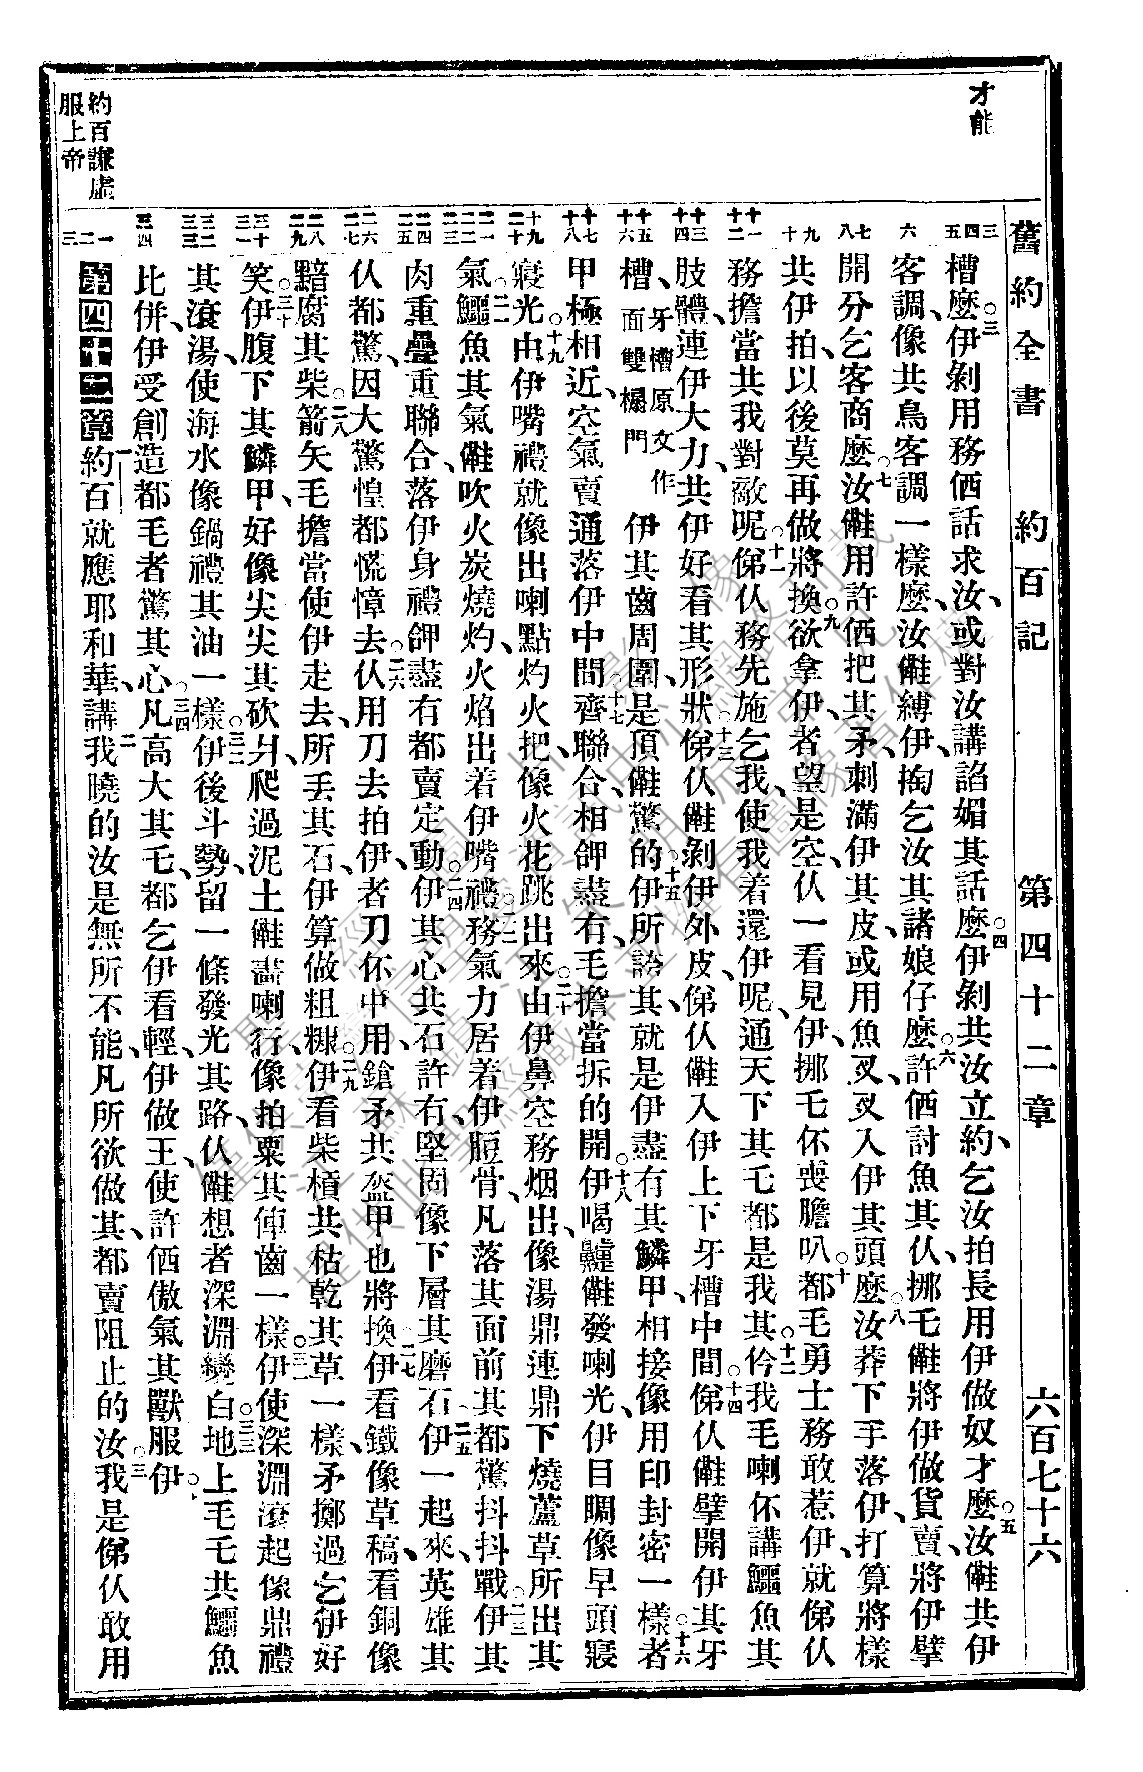 舊約全書 約百記 第四十二章 六百七十六
才能
槽麼、○三伊剝用務偤話求汝、或對汝講諂媚其話麼、○四伊剝共汝立約、乞汝拍長用伊做奴才麼、○五汝𣍐共伊
客調、像共鳥客調一樣麼、汝𣍐縛伊、掏乞汝其諸娘仔麼、○六許偤討魚其仈、挪乇𣍐將伊做貨賣、將伊擘
開分乞客商麼、○七汝𣍐用許偤把其矛、刺滿伊其皮、或用魚叉、叉入伊其頭麼、○八汝莽下手落伊、打算將樣
共伊拍、以後莫再做將換、○九欲拿伊者望是空、仈一看見伊、挪乇伓喪膽叭、○十都毛勇士務敢惹伊、就俤仈
務擔當共我對敵呢、○十一俤仈務先施乞我、使我着還伊呢、通天下其乇都是我其、○十二仱我毛喇伓講鱷魚其
肢體、連伊大力、共伊好看其形狀、○十三俤仈𣍐剝伊外皮、俤仈𣍐入伊上下牙槽中間、○十四俤仈𣍐擘開伊其牙
槽、牙槽原文作面雙榻門 伊其齒周圍、是頂𣍐驚的、○十五伊所誇其、就是伊盡有其鱗甲、相接像用印封密一樣、○十六者
甲極相近、空氣賣通落伊中間、○十七齊聯合相𬼄盡有、毛擔當拆的開、○十八伊喝嚏𣍐發喇光、伊目睭像早頭寢
寢光、○十九由伊嘴禮就像出喇點灼火把、像火花跳出來、○二十由伊鼻空務烟出、像湯鼎連鼎下燒蘆草所出其
氣、○二一鱷魚其氣、𣍐吹火炭燒灼、火焰出着伊嘴禮、○二二務氣力居着伊脰骨、凡落其面前其、都驚抖抖戰、○二三伊其
肉重疊重聯合、落伊身禮𬼄盡有、都賣定動、○二四伊其心共石許有堅固、像下層其磨石、○二五伊一起來、英雄其
仈都驚、因大驚惶都慌慞去、○二六仈用刀去拍伊、者刀伓中用、鎗矛共盔甲也將換、○二七伊看鐵像草稿、看銅像
黯腐其柴、○二八箭矢毛擔當使伊走去、所丟其石、伊算做粗糠、○二九伊看柴槓共枯乾其草一樣、矛擲過乞伊好
笑、○三十伊腹下其鱗甲、好像尖尖其砍爿、爬過泥土𣍐畫喇行、像拍粟其倳齒一樣、○三一伊使深淵滾起、像鼎禮
其滾湯、使海水像鍋禮其油一樣、○三二伊後斗勢、留一條發光其路、仈𣍐想者深淵變白、○三三地上毛乇共鱷魚
比併、伊受創造都毛者驚其心、○三四凡高大其乇、都乞伊看輕、伊做王、使許偤傲氣其獸服伊○
約百謙虛服上帝
第四十二章 ○一約百就應耶和華、講、○二我曉的汝是無所不能、凡所欲做其、都賣阻止的汝、○三我是俤仈敢用